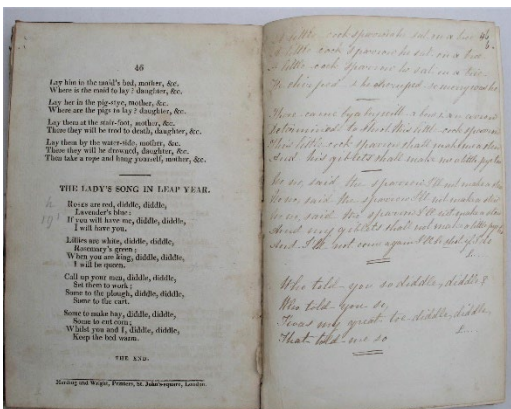 46
Lay him in the maid's bed, mother, &c.
Where is the maid to lay ? daughter, &c.
Lay her in the pig-stye, mother, &c.
Where are the pigs to lay ? daughter, &c.
Lay them at the stair-foot, mother, &c.
There they will be trod to death, daughter, &c.
Lay them by the water-side, mother, &c.
There they will be drowned, daughter, &c.
Then take a rope and hang yourself, mother, &c.
THE LADY'S SONG IN LEAP YEAR.
Roses are red, diddle, diddle,
Lavender's blue:
If you will have me, diddle, diddle,
I will have you.
Lillies are white, diddle, diddle,
Rosemary's green;
When you are king, diddle, diddle,
I will be queen.
Call up your men, diddle, diddle,
Set them to work;
Some to the plough, diddle, diddle,
Some to the cart.
Some to make hay, diddle, diddle,
Some to cut corn;
Whilst you and I, diddle, diddle,
Keep the bed warm.
THE END.
Harding and Wright, Printers, St. John's-square, London.
A little cock sparrow he sat on a tree
A little cock sparrow he sat on a tree
A little cock sparrow he sat on a tree
He chirped he chirped so merry was he
There came by a boy with a bow and arrow
Determined to shoot this little cock sparrow
This little cock sparrow shall make me a stew
And his giblets shall make me a little pye too
no, said the sparrow I'll not make a stew
no, said the sparrow I'll not make a stew
no, said the sparrow I'll not make a stew
And my giblets shall not make a little pye
And I'll not come again
Who told you so diddle, diddle?
Who told you so,
Twas my great toe diddle, diddle,
That told me so